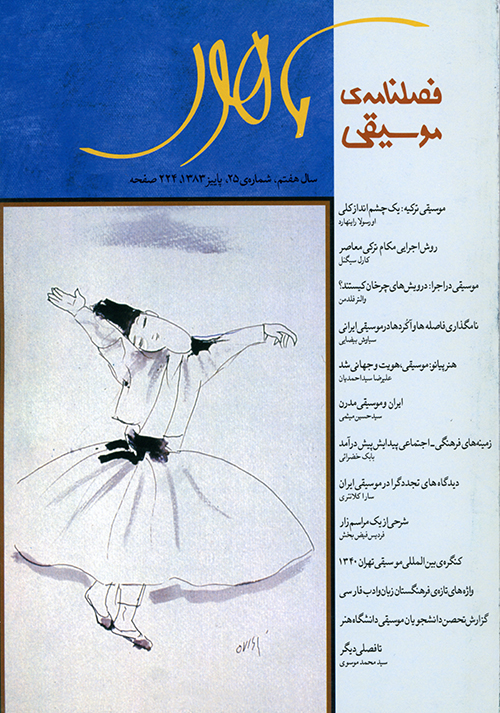 ماهور
فصلنامه‌ی
موسیقی
سال هفتم، شماره‌ی ۲۵، پاییز ۱۳۸۳، ۲۲۴ صفحه
موسیقی ترکیه: یک چشم انداز کلی
اورسولا راینهارد
روش اجرایی مکام ترکی معاصر
کارل سیگنل
موسیقی در اجرا: درویش‌های چرخان کیستند؟
والتر فلدمن
نامگذاری فاصله‌ها و آکُردها در موسیقی ایرانی
سیاوش بیضایی
هنر پیانو: موسیقی، هویت و جهانی شدن
علیرضا سیداحمدیان
ایران و موسیقی مدرن
سیدحسین میثمی
زمینه‌های فرهنگی - اجتماعی پیدایش پیش درآمد
بابک خضرائی
دیدگاه های تجددگرا در موسیقی ایران
سارا کلانتری
شرحی از یک مراسم زار
فردیس فیض بخش
کنگره‌ی بین المللی موسیقی تهران ۱۳۴۰
واژه‌های تازه‌ی فرهنگستان زبان و ادب فارسی
گزارش تحصن دانشجویان موسیقی دانشگاه هنر
تا فصلی دیگر
سید محمد موسوی